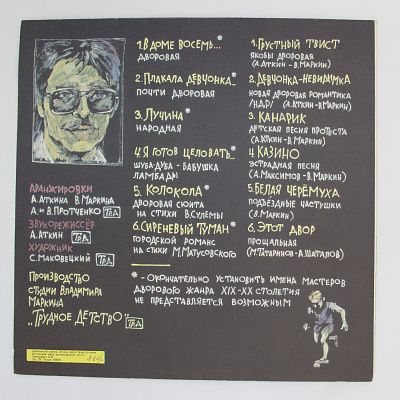 1. В ДОМЕ ВОСЕМЬ...*
ДВОРОВАЯ
2. ПЛАКАЛА ДЕВЧОНКА...*
ПОЧТИ ДВОРОВАЯ
3. ЛУЧИНА*
НАРОДНАЯ
4. Я ГОТОВ ЦЕЛОВАТЬ...*
ШУБА-ДУБА - БАБУШКА
ЛАМБАДЫ
5. КОЛОКОЛА*
ДВОРОВАЯ СЮИТА
НА СТИХИ В СУЛЕМЫ
6. СИРЕНЕВЫЙ ТУМАН*
ГОРОДСКОЙ РОМАНС
НА СТИХИ М. МАТУСОВСКОГО
1. ГРУСТНЫЙ ТВИСТ
ЯКОБЫ ДВОРОВАЯ
(А. АТКИН - В. МАРКИН)
2. ДЕВЧОНКА-НЕВИДИМКА
НОВАЯ ДВОРОВАЯ РОМАНТИКА
/Н.Д.Р./ (А. АТКИН - В. МАРКИН)
3. КАНАРИК
ДЕТСКАЯ ПЕСНЯ ПРОТЕСТА
(А. АТКИН - В. МАРКИН)
4. КАЗИНО
ЭСТРАДНАЯ ПЕСНЯ
(А. МАКСИМОВ - В. МАРКИН)
5. БЕЛАЯ ЧЕРЁМУХА
ПОДЪЕЗДНЫЕ ЧАСТУШКИ
(В. МАРКИН)
6. ЭТОТ ДВОР
ПРОЩАЛЬНАЯ
(М. ТАТАРИНОВ - А. ШАТАЛОВ)
АРАНЖИРОВКИ
А. АТКИНА В. МАРКИНА
А. И В. ПРОТЧЕНКО
ЗВУКОРЕЖИССЁР
А. АТКИН
ХУДОЖНИК
С. МАКОВЕЦКИЙ
ПРОИЗВОДСТВО
СТУДИИ ВЛАДИМИРА
МАРКИНА
„ТРУДНОЕ ДЕТСТВО"
* - ОКОНЧАТЕЛЬНО УСТАНОВИТЬ ИМЕНА МАСТЕРОВ
ДВОРОВОГО ЖАНРА XIX-XX СТОЛЕТИЯ
НЕ ПРЕДСТАВЛЯЕТСЯ ВОЗМОЖНЫМ